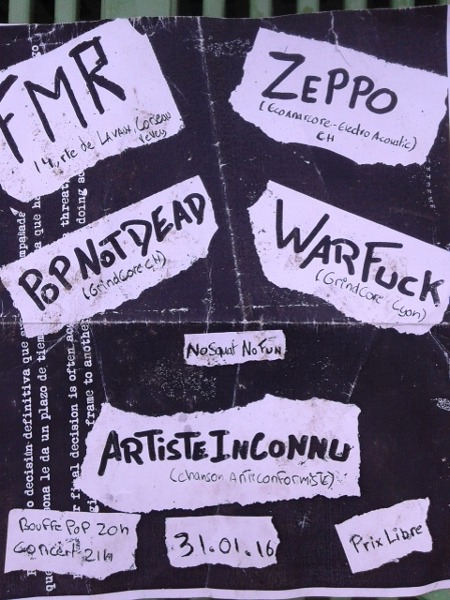 FMR
14, rte de LAVAUX Corseau
Vevey
ZEPPO
(Econarcore-Electro Acoustic)
CH
POP NOT DEAD
(GrindCore CH)
WARFUCK
(GrindCore Lyon)
No Squat No Fun
ARTiSTE INCONNU
(chanson Anticonformiste)
Bouffe Pop 20h
Concert 21h
31.01.16
Prix Libre
threat
doing so
o decisión definitiva que
ona le da un plazo de tiem
final decision is often
frame to another